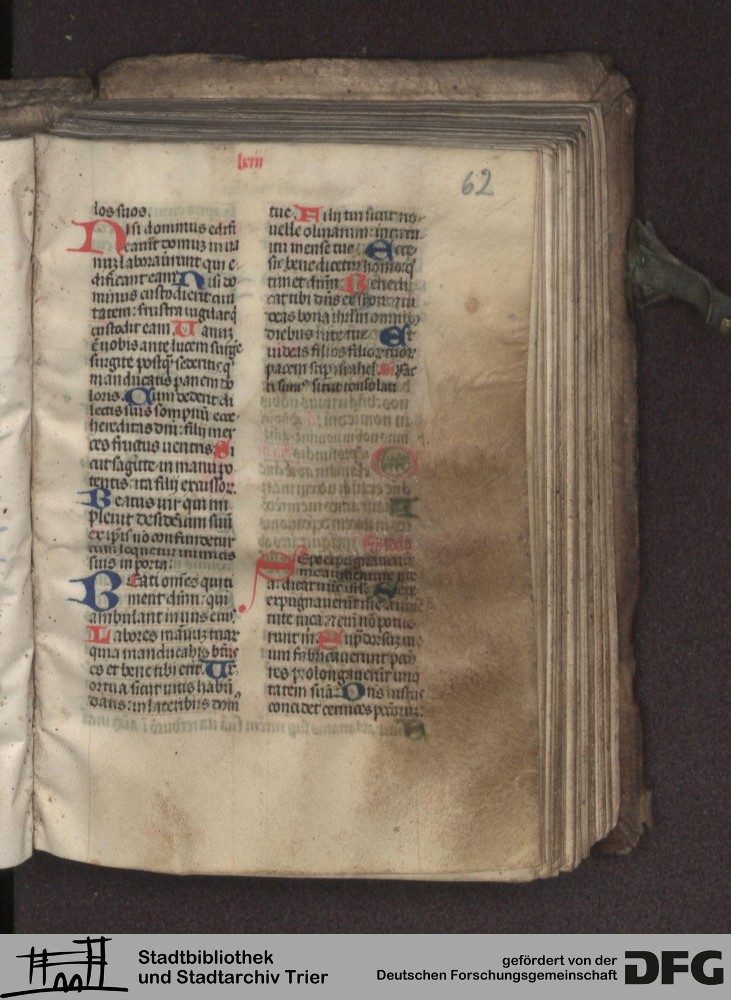 lxiii
62
los suos.
Nisi dominus edifi
cauerit domuz in ua
nuz laborauerunt qui e
dificant eam Nisi do
minus custodierit ciui
tatem: frustra uigilat q
custodit eam Uanuz
e nobis ante lucem surge
surgite postq sederitis q
manducatis panem do
loris. Cum dederit di
lectis suis sompnu ecce
hereditas dni: filij mer
ces fructus uentris Si
cut sagitte in manu po
tentis: ita filij excussor.
Beatus uir qui im
pleuit desideriu suu
ex ipsis no confundetur
cum loquetur inimicis
suis in porta.
Beati omnes qui ti
ment dnm: qui
ambulant in uiis eius.
Labores manuuz tuar
quia manducabis btus
es et bene tibi erit. Ux
or tua sicut uitis habu
dans: in lateribus dom
tue. Filij tui sicut no
uelle oliuarum: in circu
itu mense tue. Ecce
sic bene dicetur homo q
timet dnm Benedi
cat tibi dns ex sion: et ui
deas bona ihrlm omnib
diebus uite tue Et
uideas filios filior tuor
pacem sup israhel.
ti sum sicut consolati
Sepe expugnauerut
me a iuuentute me
a: dicat nuc isrl. Sepe
expugnauerut me a iuue
tute mea: eteni no potue
runt m Sup dorsuz me
um fabricauerunt pcco
res prolongauerut iniq
tatem sua. Dns iustus
concidet ceruices pccoruz:
Stadtbibliothek
und Stadtarchiv Trier
gefördert von der
Deutschen Forschungsgemeinschaft
DFG